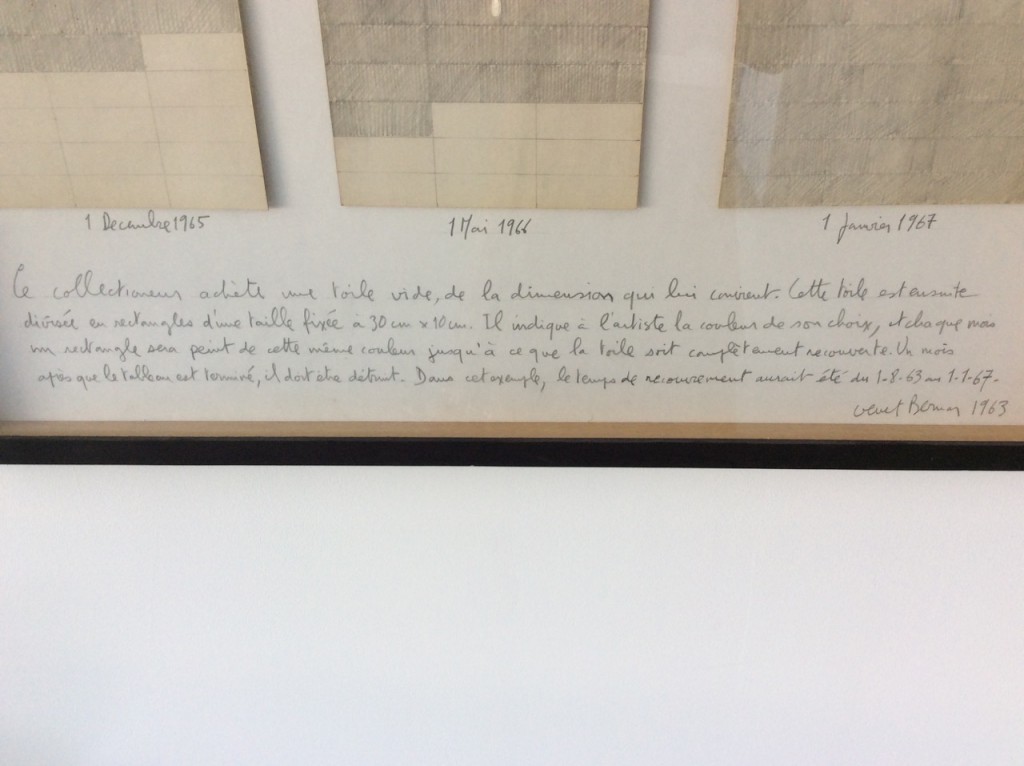 1 Decembre 1965
1 Mai 1966
1 Janvier 1967
Le collectioneur achète une toile vide, de la dimension qui lui convient. Cette toile est ensuite
divisée en rectangles d'une taille fixée à 30 cm x 10 cm. Il indique à l'artiste la couleur de son choix, et chaque mois
un rectangle sera peint de cette même couleur jusqu'à ce que la toile soit complètement recouverte. Un mois
après que le tableau est terminé, il doit être détruit. Dans cet exemple, le temps de recouvrement aurait été du 1-8-63 au 1-1-67.
venet Bernar 1963